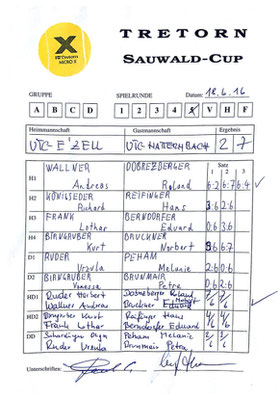 TRETORN
SAUWALD-CUP
X
TRETORN
MICRO X
GRUPPE SPIELRUNDE Datum: 18.6.16
A B C D 1 2 3 4 5 V H F
Heimmannschaft Gastmannschaft Ergebnis
UTC-E'ZELL UTC-NATTERNBACH 2 7
WALLNER DOBREZBERGER Satz
1 2 3
H1 Andreas Roland 6:2 6:7 6:4
H2 KÖNIGSEDER REIFINGER
Richard Hans 3:6 2:6
H3 FRANK BERNDORFER
Lothar Eduard 0:6 3:6
H4 BIRNGRUBER BRUCKNER
Kurt Norbert 6:7
D1 RUDER PEHAM
Ursula Melanie 2:6 0:6
D2 BIRNGRUBER BRUNMAIR
Vanessa Petra 0:6 2:6
HD1 Ruder Herbert Roland
Wallner Andreas Bruckner
HD2 Kurt Reifinger Hans
Frank Lothar Berndorfer Eduard
DD Peham Melanie
Ruder Ursula Brunmair Petra
Unterschriften: